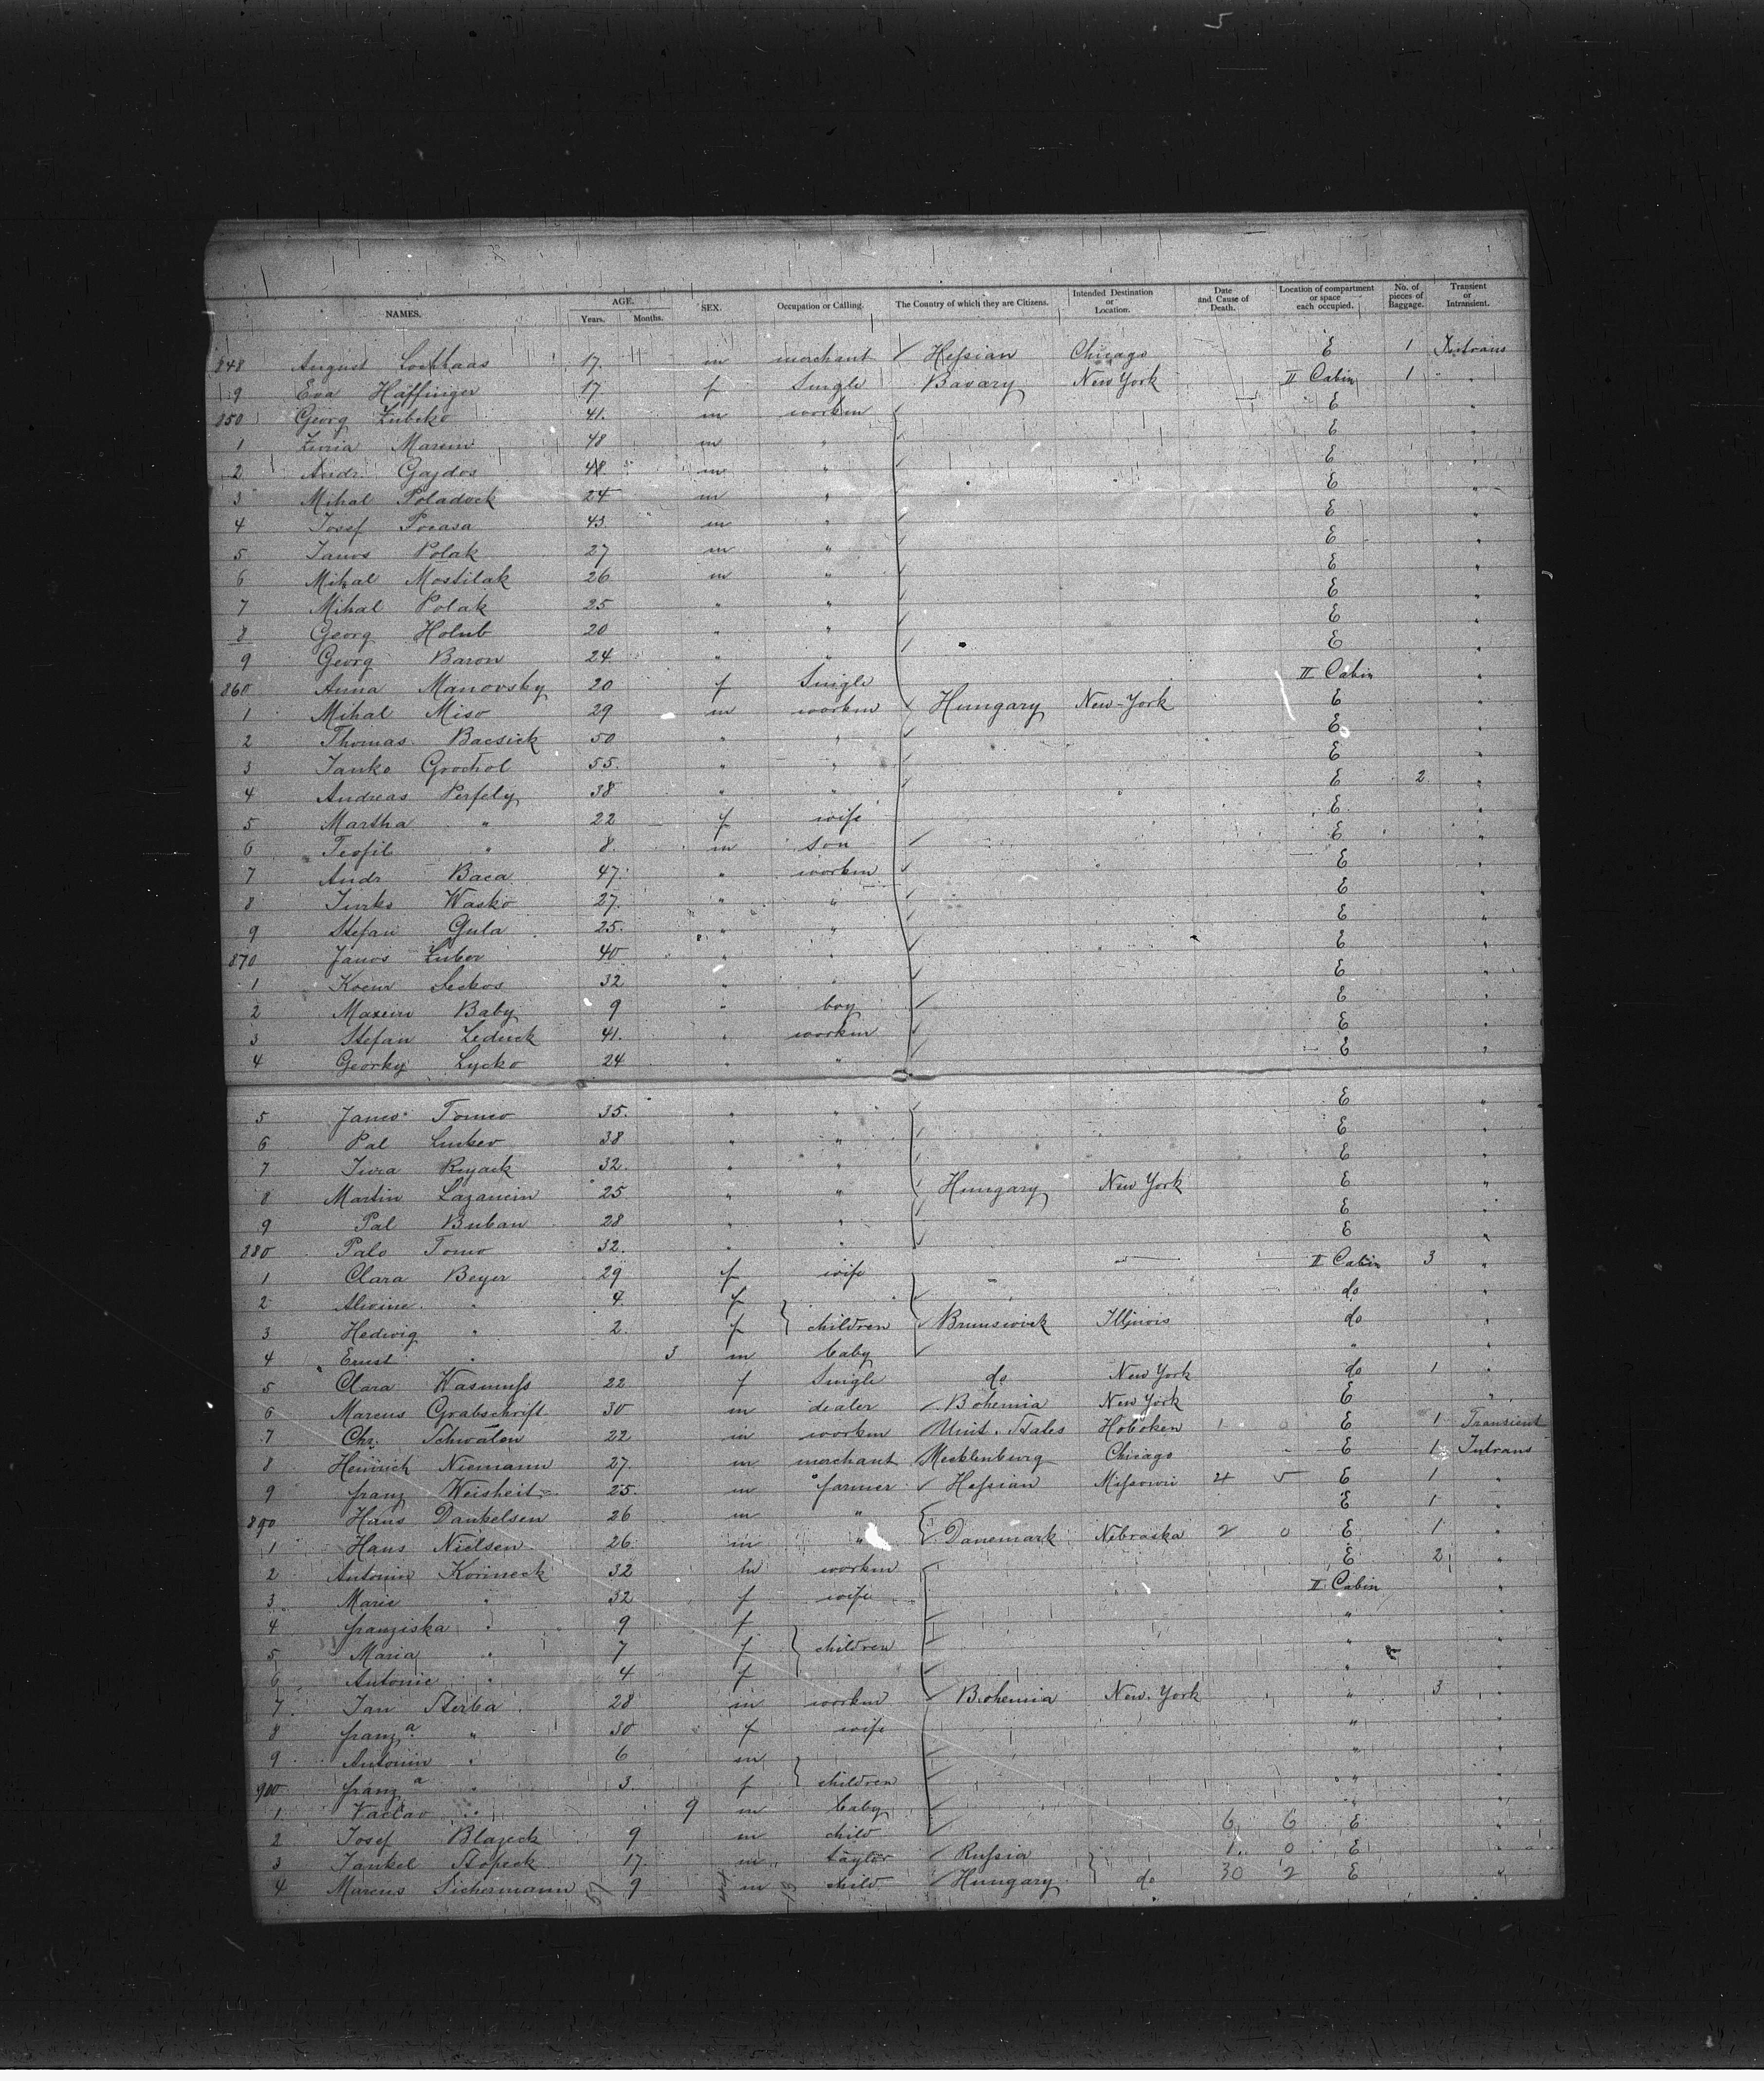 NAMES. AGE. Years. Months. SEX. Occupation or Calling. The Country of which they are Citizens. Intended Destination or Location. Date and Cause of Death. Location of compartment or space each occupied. No. of pieces of Baggage. Transient or Intransient.
848 August 17 m merchant Hessian Chicago E 1 Intrans
9 Eva Häffinger 17 f Single Bavary New York II Cabin 1 "
850 Georg Zubeko 41 m workm E "
1 48 m " E "
2 Andr. Gajdos 48 m " E "
3 Mihal Poladock 24 m " E "
4 Josef Pocasa 43 m " E "
5 Janos Polak 27 m " E "
6 Mihal Mostilak 26 m " E "
7 Mihal Polak 25 " " E "
8 Georg Holub 20 " " E "
9 Georg Baron 24 " " E "
860 Anna Manovsky 20 f Single II Cabin "
1 Mihal Miso 29 m workm Hungary New-York E "
2 Thomas Bacsick 50 " " E "
3 Janko Grochol 55 " " E "
4 Andreas Perfely 38 " " E 2 "
5 Martha " 22 f wife E "
6 Teofil " 8 m Son E "
7 Andr Baca 47 " workm E "
8 Jurko Wasko 27 " " E "
9 Stefan Gula 25 " " E "
870 Janos Zubor 40 " " E "
1 32 " " E "
2 Baby 9 " boy E "
3 Stefan 41 " workm E "
4 Georky Lycko 24 " " E "
5 Janos Tomco 35 " " E "
6 Pal 38 " " E "
7 Jura 32 " " E "
8 Martin 25 " " Hungary New York E "
9 Pal Buban 28 " " E "
880 Palo Tomo 32 " " E "
1 Clara Beyer 29 f wife II Cabin 3 "
2 Alwine " 4 f do "
3 Hedwig " 2 f children Brunswick Illinois do "
4 Ernst " 3 m baby " "
5 Clara Wasmuss 22 f Single do New York do 1 "
6 Marcus Grabschrift 30 m dealer Bohemia New York E "
7 Chr. Schwalen 22 m workm Unit. States Hoboken 1 0 E 1 Transient
8 Heinrich Niemann 27 m merchant Mecklenburg Chicago E 1 Intrans
9 Franz Weisheit 25 m farmer Hessian Missouri 4 5 E 1 "
890 Hans Dankelsen 26 m " E 1 "
1 Hans Nielsen 26 m " Danemark Nebraska 2 0 E 1 "
2 Antonin Korineck 32 m workm E 2 "
3 Marie " 32 f wife II Cabin "
4 Franziska " 9 f " "
5 Maria " 7 f children " "
6 Antonie " 4 f " "
7 Jan Sterba 28 m workm Bohemia New. York " 3 "
8 Franzª " 30 f wife " "
9 Antonin " 6 m " "
900 Franzª " 3 f children " "
1 Vaclav " 9 m baby " "
2 Josef Blazeck 9 m child 6 6 E "
3 Jankel Stopeck 17 m taylor Russia 1 0 E "
4 Marcus Sichermann 9 m child Hungary do 30 2 E "
57 13